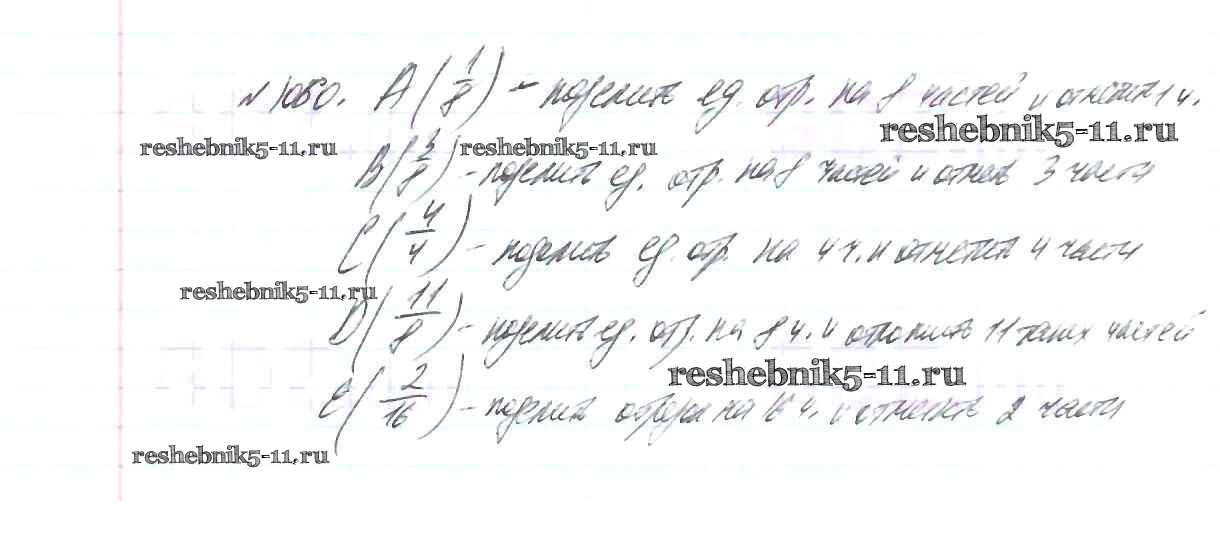 № 1050. A(1/8) – поделить ед. отр. на 8 частей и отметить 1 ч.
reshebnik5-11.ru
reshebnik5-11.ru
reshebnik5-11.ru
B(3/8) – поделить ед. отр. на 8 частей и отмет 3 части
C(4/4) – поделить ед. отр. на 4 ч. и отметить 4 части
reshebnik5-11.ru
D(11/8) – поделить ед. отр. на 8 ч. и отложить 11 таких частей
reshebnik5-11.ru
E(2/16) – поделить отрезок на 16 ч. и отметить 2 части
reshebnik5-11.ru